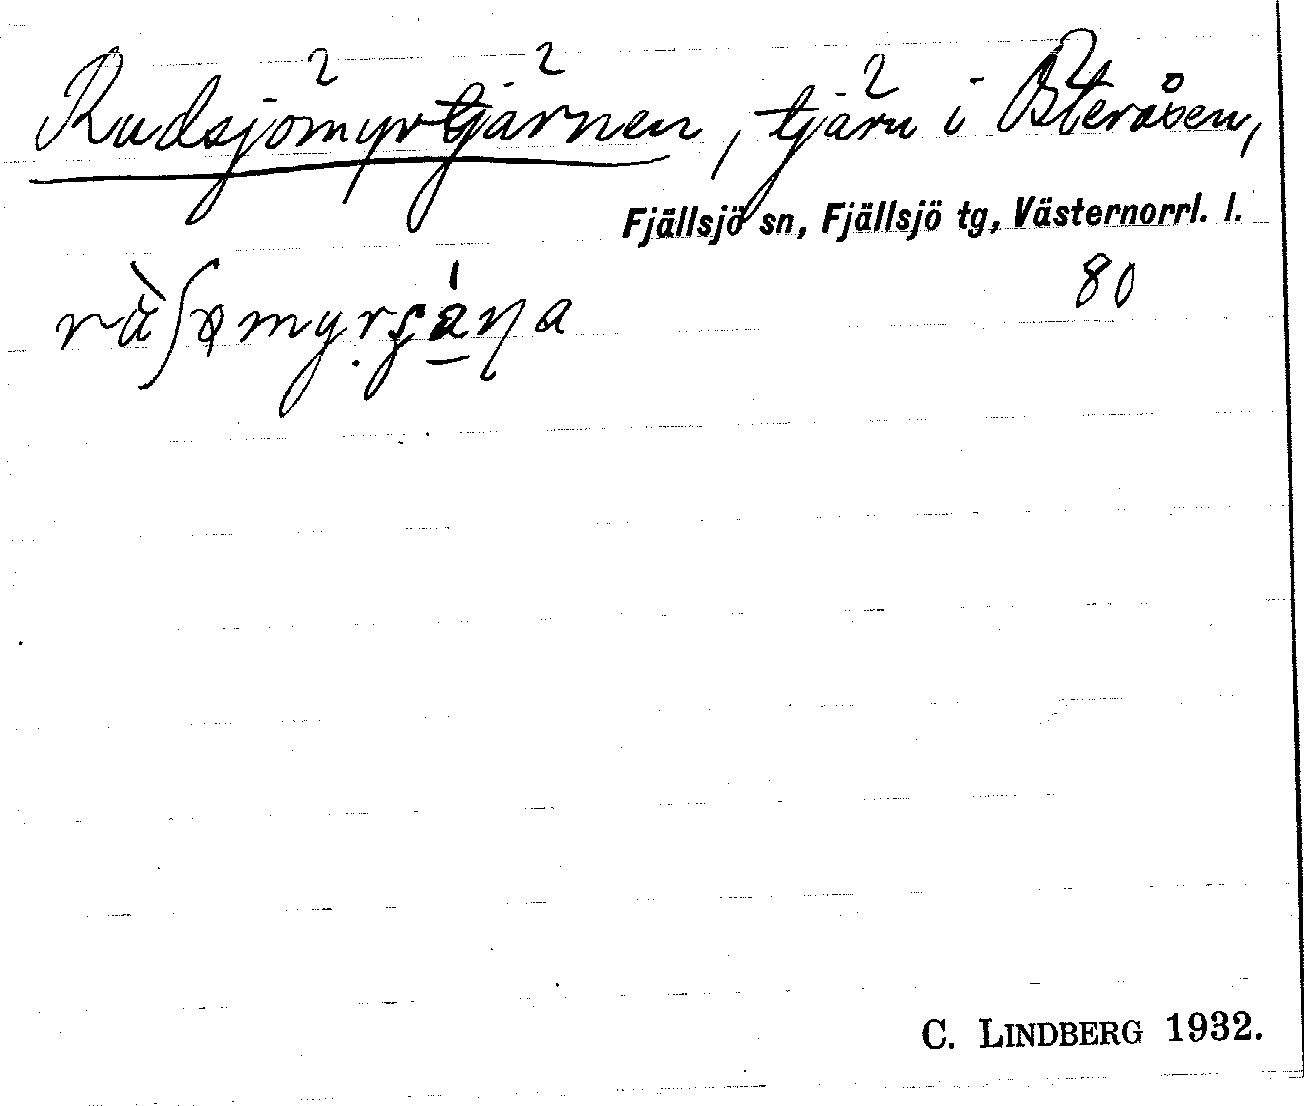 Rudsjömyrtjärnen, tjärn i Österåsen,
Fjällsjö sn, Fjällsjö tg, Västernorrl. l.
80
C. LINDBERG 1932.